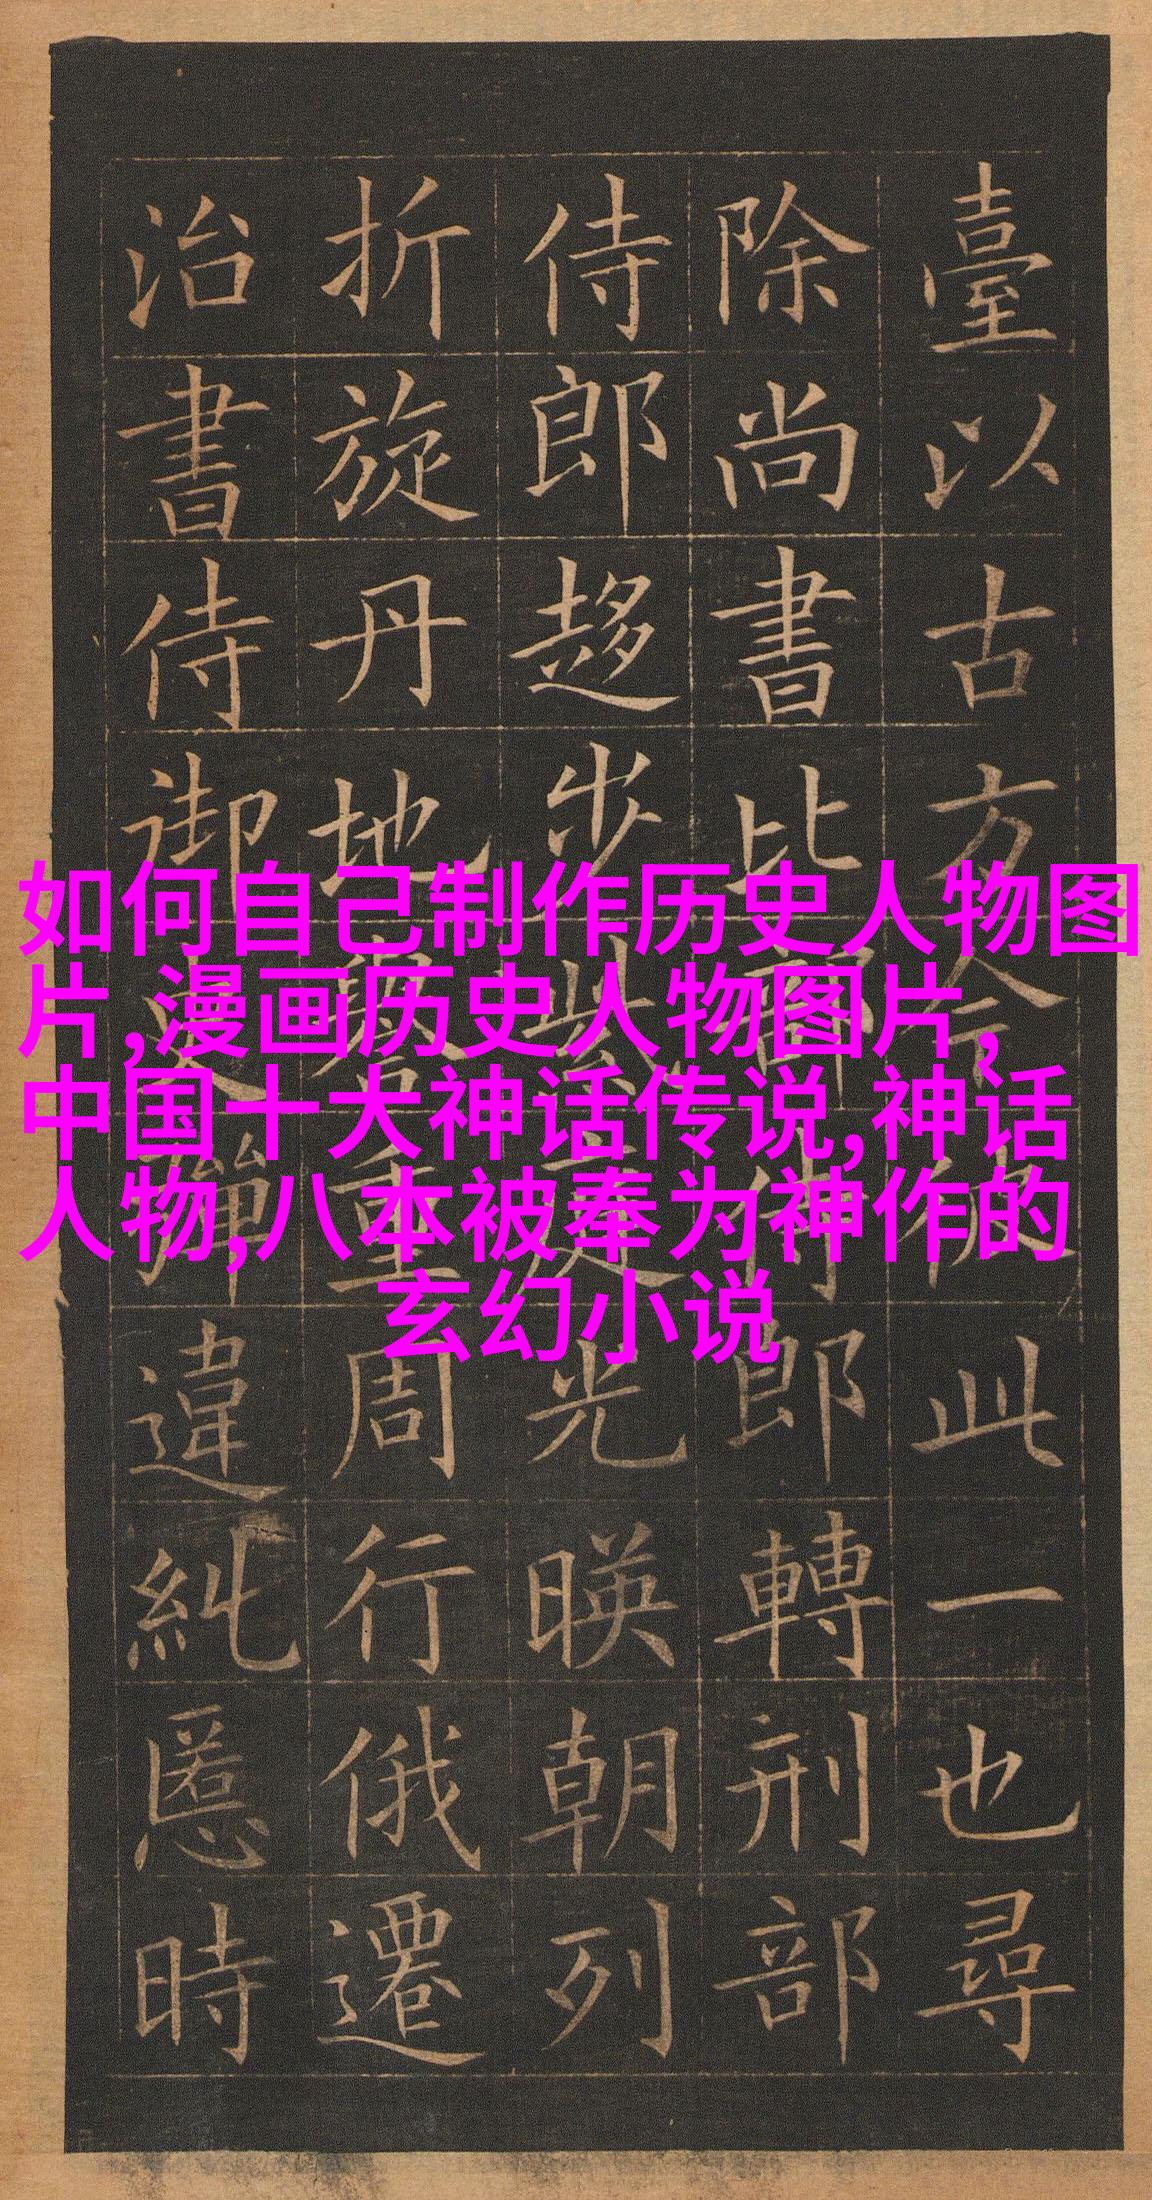 臺以古方今彼此一也尋
除尚書比部侍郎轉刑部
侍郎趍步紫庭光暎朝列
折旋丹地譽重周行俄遷
治書侍御史彈違糺慝時
如何自己制作历史人物图
片,漫画历史人物图片，
中国十大神话传说,神话
人物,八本被奉为神作的
玄幻小说